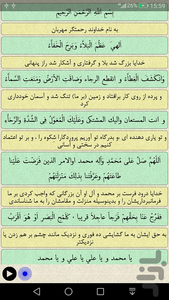 15:59
بِسْمِ اللَّهِ الرَّحْمَنِ الرَّحِيمِ
به نام خداوند رحمتگر مهربان
اِلهي عَظُمَ الْبَلاءُ وَبَرِحَ الْخَفآءُ
خدایا بزرگ شد بلا و گرفتاری و آشکار شد راز پنهانی
وَانْكَشَفَ الْغِطآءُ وَ انقطع الرجاء وَضاقَتِ الاَرْضُ وَمَنَعَتِ السَّمآءُ
و پرده از روی کار برافتاد و زمین (بر ما) تنگ شد و آسمان خودداری کرد
و انت المستعان والیك المشتکی وَعَلَيْكَ الْمُعَوَّلُ فِي الشِّدَةِ وَالرَّخآءِ
و تو یاری دهنده ای و بدرگاه تو آوریم پروردگارا شکوه را ، و بر تو اعتماد کنیم در سختی و آسانی
اللَّهُمَّ صَلِّ عَلى محَمَّدٍ وَآلِه محمد اولاالامر الَّذينَ فَرَضْتَ عَلَيْنا طاعَتَهُمْ وَعَرَّفْتَنا بِذلِكَ مَنْزِلَتَهُمْ
خدایا درود فرست بر محمد و آل او آن بزرگانی که واجب کردی بر ما فرمانبرداریشان را و بدینوسیله منزلت و مقامشان را به ما شناساندی
فَفَرِّجْ عَنّا بِحَقِّهِمْ فَرَجاً عاجِلاً قَريباً ، كَلَمْحِ الْبَصَرِ اَوْ هُوَ اَقْرَبُ
به حق ایشان به ما گشایشی ده فوری و نزدیک مانند چشم بر هم زدن یا نزدیکتر
یا محمد یا علی یا علی و یا محمد